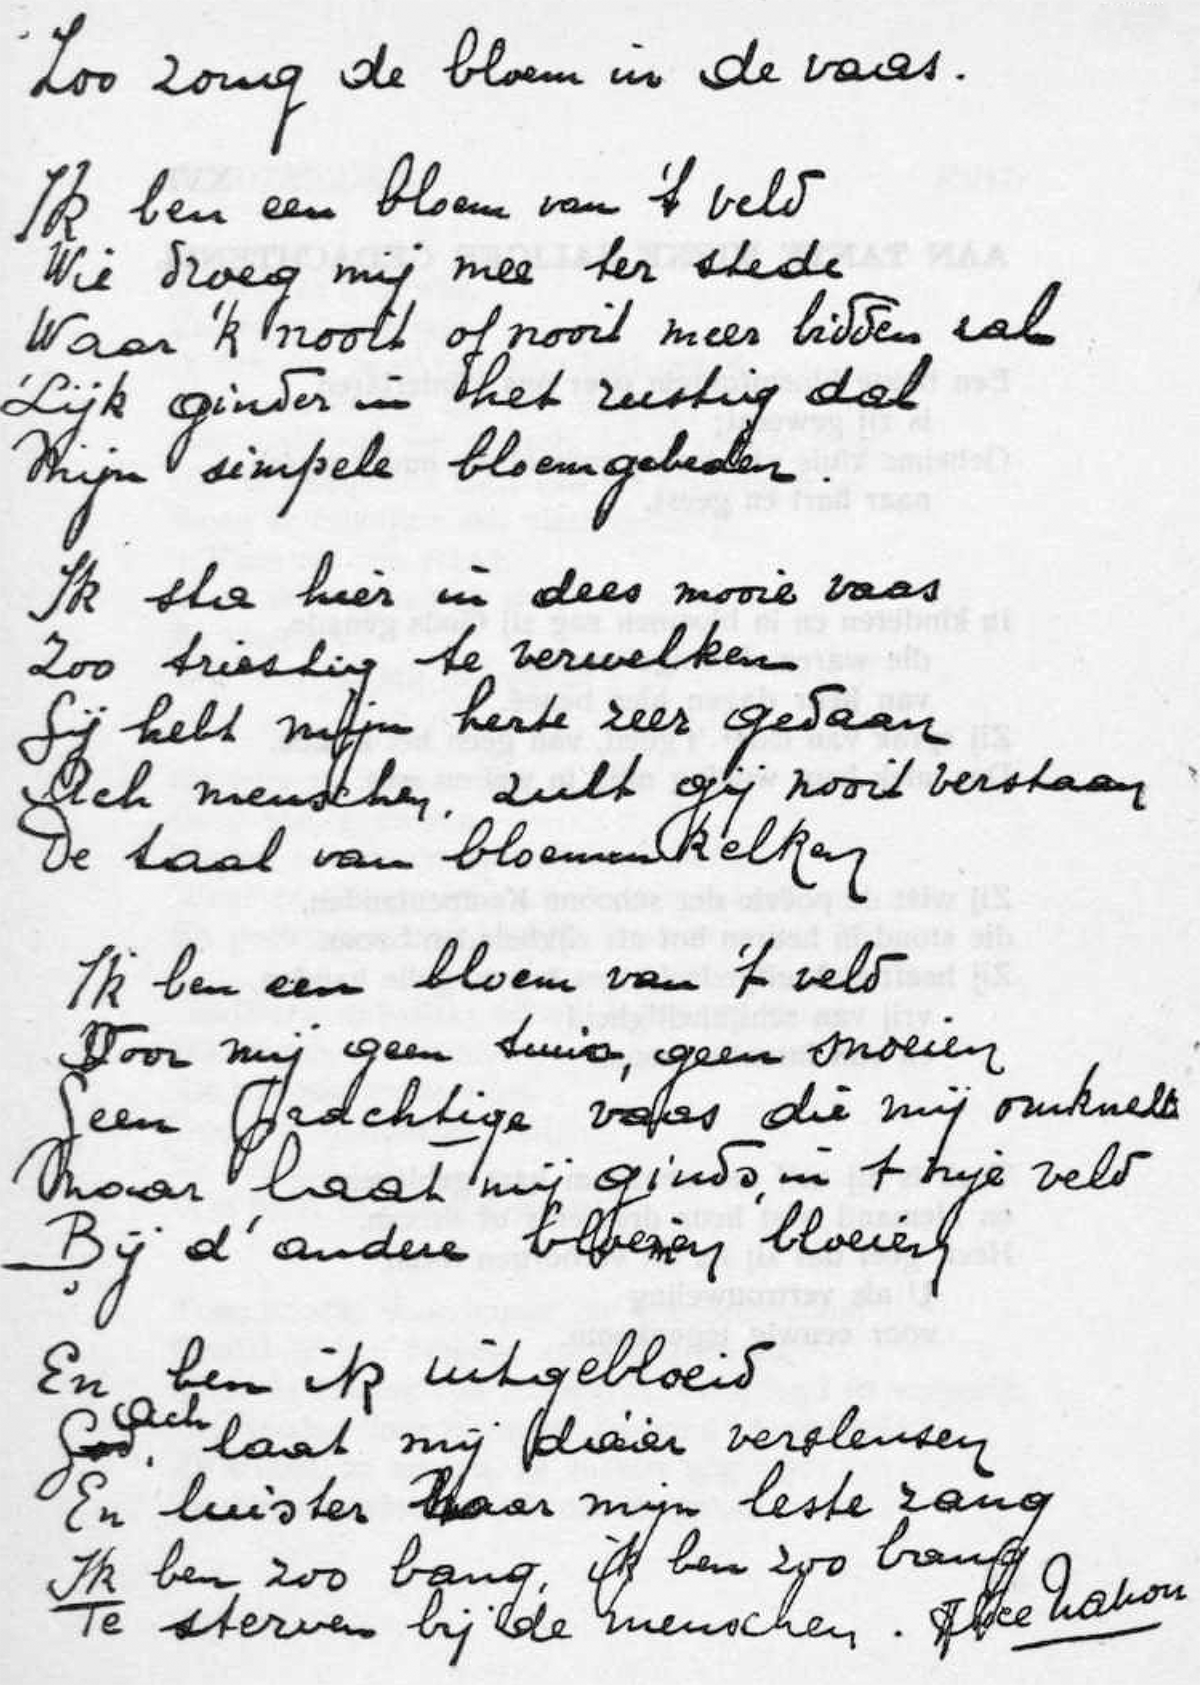 Zoo zong de bloem in de vaas.
Ik ben een bloem van 't veld
Wie droeg mij mee ter stede
Waar 'k nooit of nooit meer bidden zal
'Lijk ginder in het rustig dal
Mijn simpele bloemgebeden.
Ik sta hier in dees mooie vaas
Zoo triestig te verwelken
Gij hebt mijn herte zeer gedaan
Ach menschen, zult gij nooit verstaan
De taal van bloemenkelken
Ik ben een bloem van 't veld
Voor mij geen tuin, geen snoeien
Geen prachtige vaas die mij omknelt
Maar laat mij ginds, in t vrije veld
Bij d'andere bloemen bloeien
En ben ik uitgebloeid
Ach
God, laat mij dáár verslensen
En luister naar mijn leste zang
Ik ben zoo bang, ik ben zoo bang
Te sterven bij de menschen. Alice Nahon